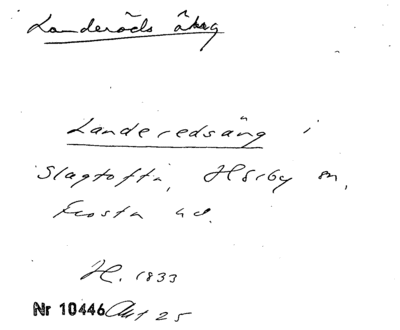 Landeröds äng
Landeredsäng i
Slagtofta, Hörby sn,
Frosta hd.
H. 1833
Nr 10446 Akt 25